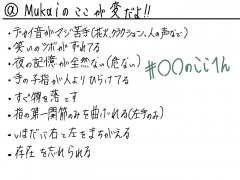 @ Mukaiのここが変だよ!!
・デカイ音がマジ苦手(ポ,クラクション、人の声など)
・笑いのツボがずれてる
・夜の記憶が全然ない(危ない)
・手の子指が人よりひらけてる
・すぐ物を落とす
・指の第一関節のみを曲げれる(左手のみ)
・いまだに右と左をまちがえる
・存在を忘れられる
#〇〇のここ変